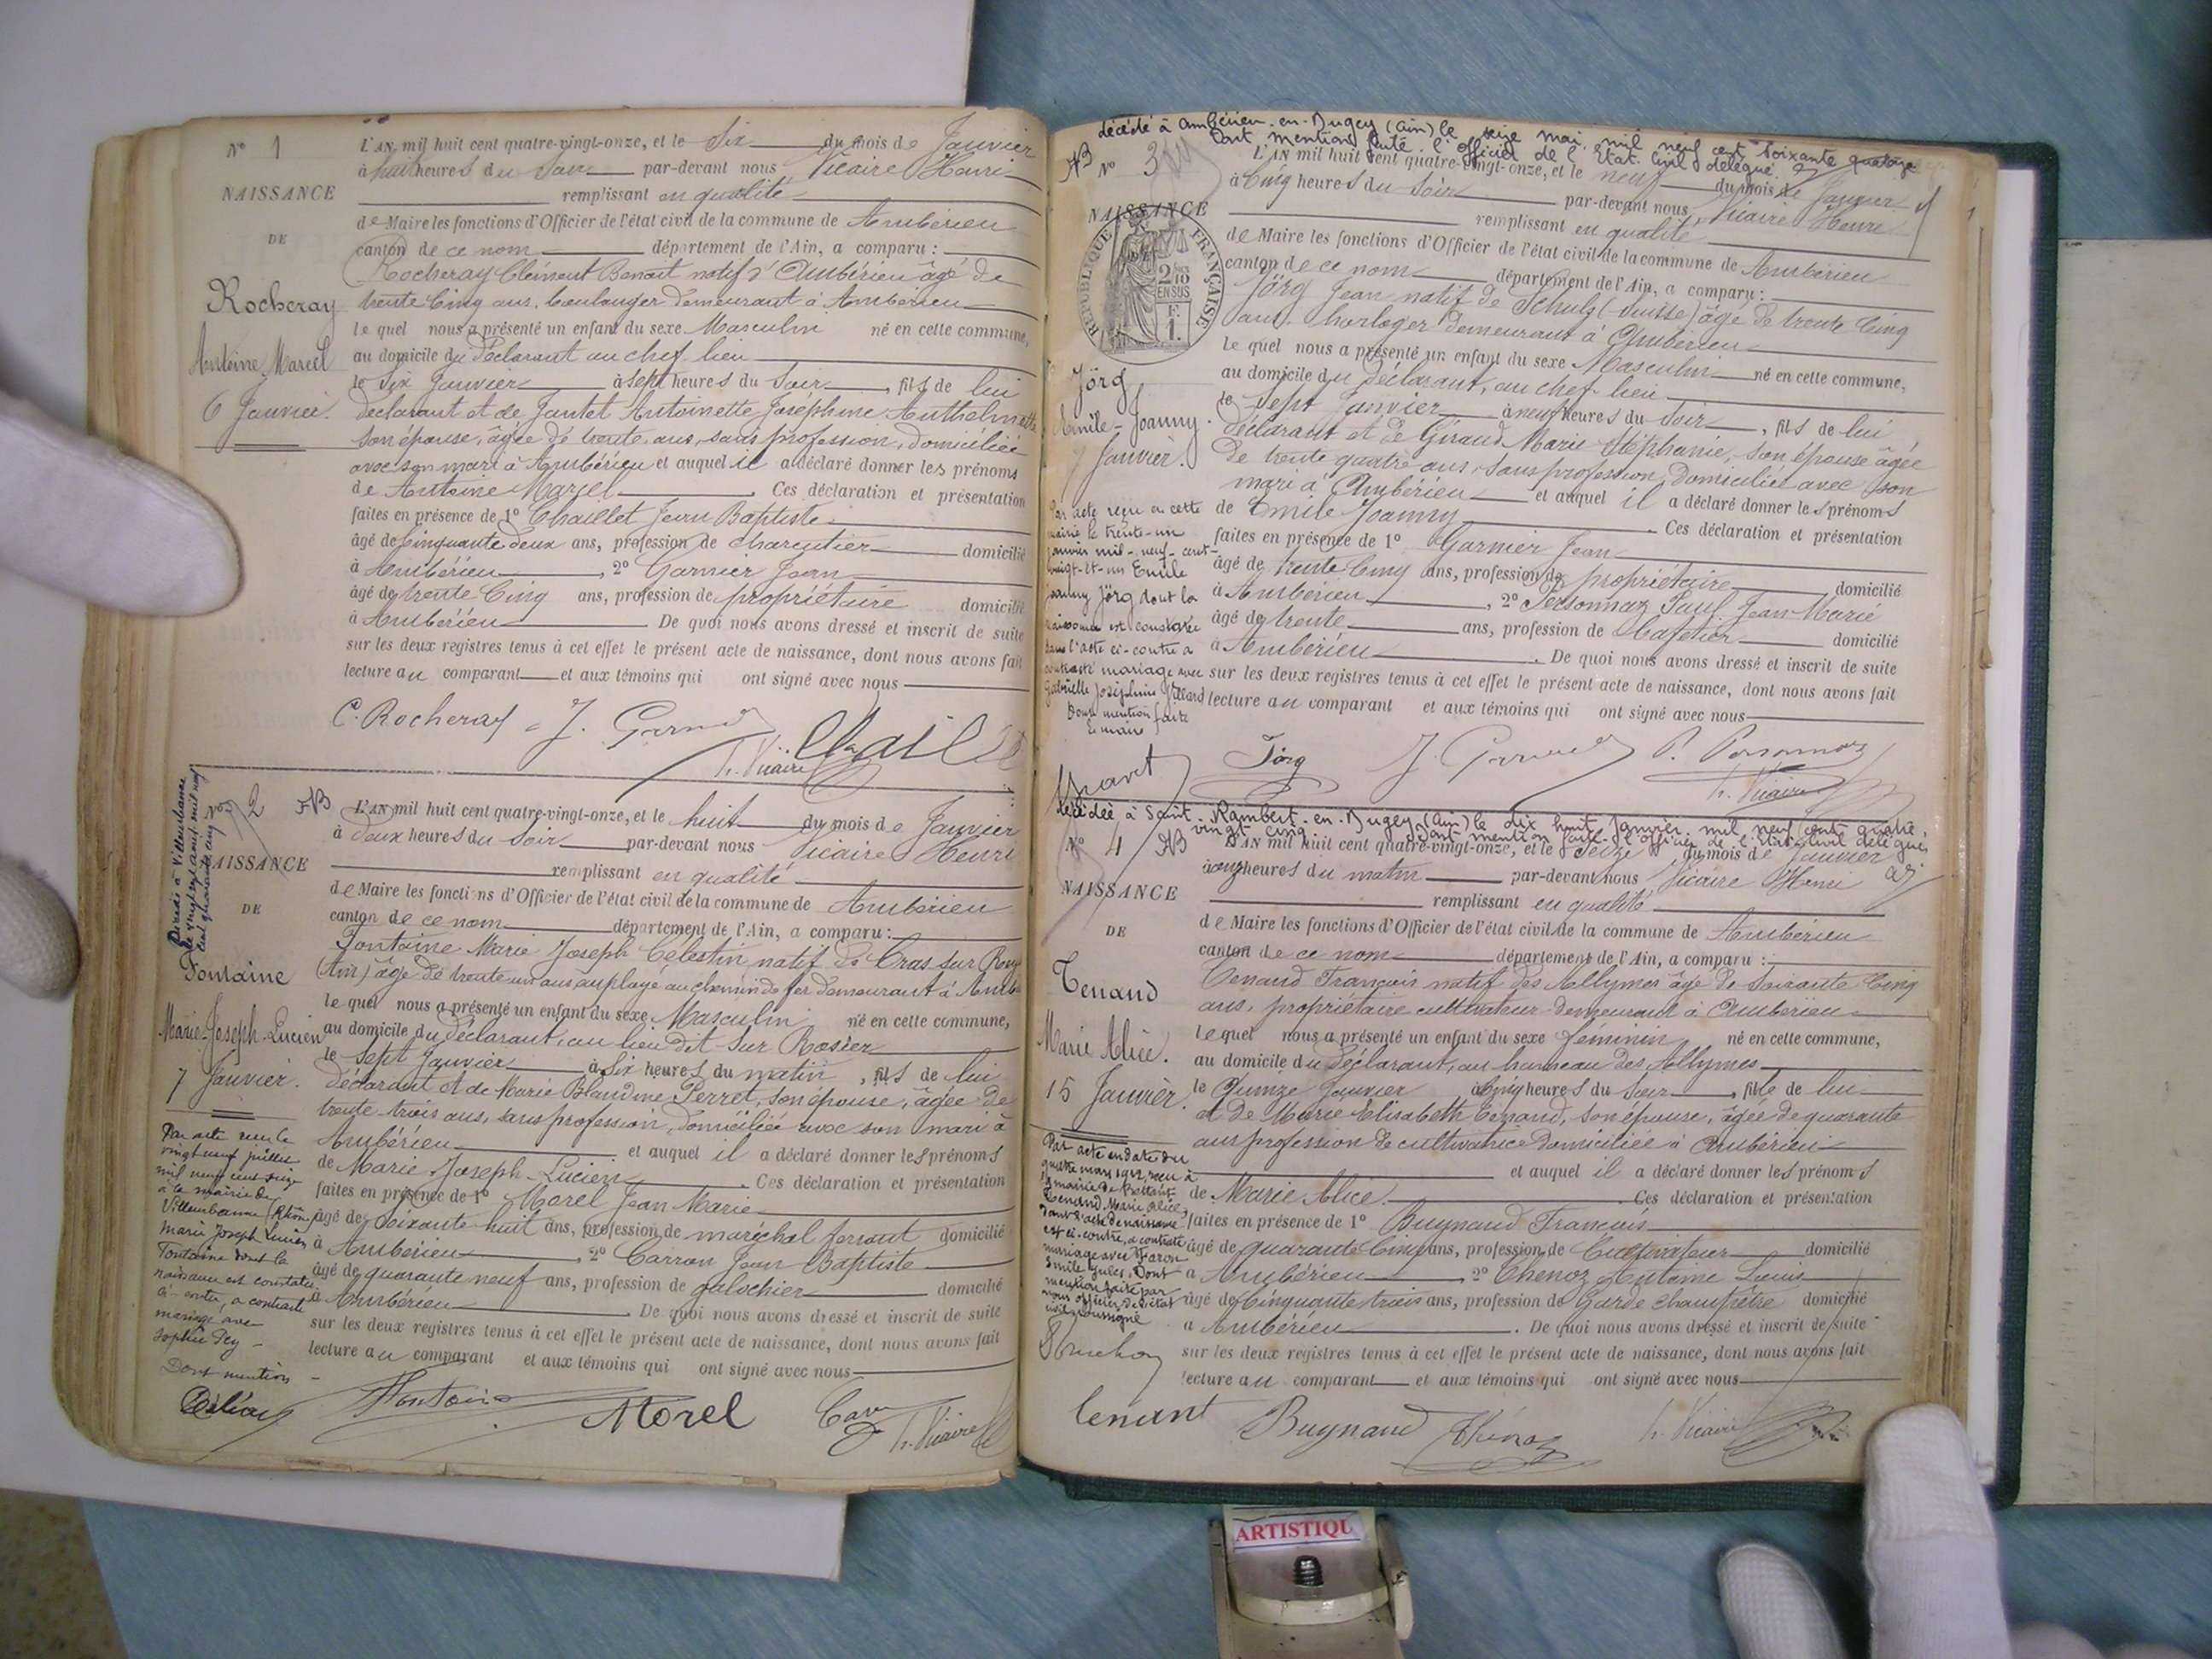 N° 1
NAISSANCE
DE
Rocheray
Antoine Marcel
6 Janvier.
L'AN mil huit cent quatre-vingt-onze, et le Six du mois de Janvier
à huit heures du Soir par-devant nous Vicaire Henri
remplissant en qualité
de Maire les fonctions d'Officier de l'état civil de la commune de Ambérieu
canton de ce nom département de l'Ain, a comparu :
Rocheray Clément Benoit natif d'Ambérieu âgé de
trente Cinq ans, boulanger demeurant à Ambérieu
le quel nous a présenté un enfant du sexe Masculin né en cette commune,
au domicile du déclarant au chef lieu
le Six Janvier à sept heures du Soir, fils de lui
déclarant et de Jantet Antoinette Joséphine Anthelmette
son épouse, âgée de trente ans, sans profession, domiciliée
avec son mari à Ambérieu et auquel il a déclaré donner les prénoms
de Antoine Marcel. Ces déclaration et présentation
faites en présence de 1° Chaillet Jean Baptiste
âgé de Cinquante deux ans, profession de charcutier domicilié
à Ambérieu, 2° Garnier Jean
âgé de trente Cinq ans, profession de propriétaire domicilié
à Ambérieu. De quoi nous avons dressé et inscrit de suite
sur les deux registres tenus à cet effet le présent acte de naissance, dont nous avons fait
lecture au comparant et aux témoins qui ont signé avec nous
C. Rocheray J. Garnier Chaillet
h. Vicaire
Décédé à Villeurbanne
le vingt sept août mil neuf
cent quarante cinq
N° 2 NB
NAISSANCE
DE
Fontaine
Marie-Joseph-Lucien
7 Janvier.
Par acte reçu le
vingt neuf juillet
mil neuf cent seize
à la mairie de
Villeurbanne (Rhône)
Marie Joseph Lucien
Fontaine dont la
naissance est constatée
ci-contre, a contracté
mariage avec
Sophie Pey
Dont mention
L'AN mil huit cent quatre-vingt-onze, et le huit du mois de Janvier
à deux heures du Soir par-devant nous Vicaire Henri
remplissant en qualité
de Maire les fonctions d'Officier de l'état civil de la commune de Ambérieu
canton de ce nom département de l'Ain, a comparu :
Fontaine Marie Joseph Célestin natif de Cras sur Reyssouze
(Ain) âgé de trente un ans employé au chemin de fer demeurant à Ambérieu
le quel nous a présenté un enfant du sexe Masculin né en cette commune,
au domicile du déclarant, au lieu dit Sur Rosier
le Sept Janvier à Six heures du matin, fils de lui
déclarant et de Marie Blandine Perret, son épouse, âgée de
trente trois ans, sans profession, domiciliée avec son mari à
Ambérieu et auquel il a déclaré donner les prénoms
de Marie Joseph-Lucien. Ces déclaration et présentation
faites en présence de 1° Morel Jean Marie
âgé de Soixante huit ans, profession de maréchal ferrant domicilié
à Ambérieu, 2° Carron Jean Baptiste
âgé de quarante neuf ans, profession de galochier domicilié
à Ambérieu. De quoi nous avons dressé et inscrit de suite
sur les deux registres tenus à cet effet le présent acte de naissance, dont nous avons fait
lecture au comparant et aux témoins qui ont signé avec nous
Fontaine Morel h. Vicaire
décédé à Ambérieu-en-Bugey (Ain) le seize mai mil neuf cent soixante quatorze
Dont mention faite l'officier de l'Etat Civil délégué
NB N° 3
NAISSANCE
DE
RÉPUBLIQUE FRANÇAISE
2/10
EN SUS
F.
1.
Jörg
Emile-Joanny.
7 Janvier.
Par acte reçu en cette
mairie le trente-un
janvier mil-neuf-cent-
vingt-et-un Emile
Joanny Jörg dont la
naissance est constatée
dans l'acte ci-contre a
contracté mariage avec
Gabrielle Joséphine Villard
Dont mention faite
Le maire
L'AN mil huit cent quatre-vingt-onze, et le neuf du mois de Janvier
à Cinq heures du Soir par-devant nous Vicaire Henri
remplissant en qualité
de Maire les fonctions d'Officier de l'état civil de la commune de Ambérieu
canton de ce nom département de l'Ain, a comparu :
Jörg Jean natif de Schulz (Suisse) âgé de trente Cinq
ans, horloger demeurant à Ambérieu
le quel nous a présenté un enfant du sexe Masculin né en cette commune,
au domicile du déclarant, au chef lieu
le Sept Janvier à neuf heures du Soir, fils de lui
déclarant et de Giraud Marie Stéphanie, son épouse âgée
de trente quatre ans, sans profession, domiciliée avec son
mari à Ambérieu et auquel il a déclaré donner les prénoms
de Emile Joanny. Ces déclaration et présentation
faites en présence de 1° Garnier Jean
âgé de trente Cinq ans, profession de propriétaire domicilié
à Ambérieu, 2° Personnaz Paul Jean-Marie
âgé de trente ans, profession de Cafetier domicilié
à Ambérieu. De quoi nous avons dressé et inscrit de suite
sur les deux registres tenus à cet effet le présent acte de naissance, dont nous avons fait
lecture au comparant et aux témoins qui ont signé avec nous
Jörg J. Garnier P. Personnaz
h. Vicaire
décédée à Saint-Rambert-en-Bugey (Ain) le dix huit Janvier mil neuf cent quatre
vingt cinq. Dont mention faite l'officier de l'Etat Civil délégué
N° 4 NB
NAISSANCE
DE
Tenand
Marie Alice.
15 Janvier.
Par acte en date du
quatre mars 1912, reçu à
la mairie de
Tenand Marie Alice,
dont l'acte de naissance
est ci-contre, a contracté
mariage avec Faron
Emile Jules. Dont
mention faite par
nous officier de l'état
civil soussigné
L'AN mil huit cent quatre-vingt-onze, et le Seize du mois de Janvier
à onze heures du matin par-devant nous Vicaire Henri
remplissant en qualité
de Maire les fonctions d'Officier de l'état civil de la commune de Ambérieu
canton de ce nom département de l'Ain, a comparu :
Tenand François natif des Allymes âgé de Soixante Cinq
ans, propriétaire cultivateur demeurant à Ambérieu
le quel nous a présenté un enfant du sexe féminin né en cette commune,
au domicile du déclarant, au hameau des Allymes
le Quinze Janvier à Cinq heures du Soir, fille de lui
et de Marie Elisabeth Tenand, son épouse, âgée de quarante
ans profession de cultivatrice domiciliée à Ambérieu
et auquel il a déclaré donner les prénoms
de Marie Alice. Ces déclaration et présentation
faites en présence de 1° Buynand François
âgé de quarante Cinq ans, profession de Cultivateur domicilié
à Ambérieu, 2° Chenoz Antoine Louis
âgé de Cinquante trois ans, profession de Garde champêtre domicilié
à Ambérieu. De quoi nous avons dressé et inscrit de suite
sur les deux registres tenus à cet effet le présent acte de naissance, dont nous avons fait
lecture au comparant et aux témoins qui ont signé avec nous
tenant Buynand Chénoz h. Vicaire
ARTISTIQU